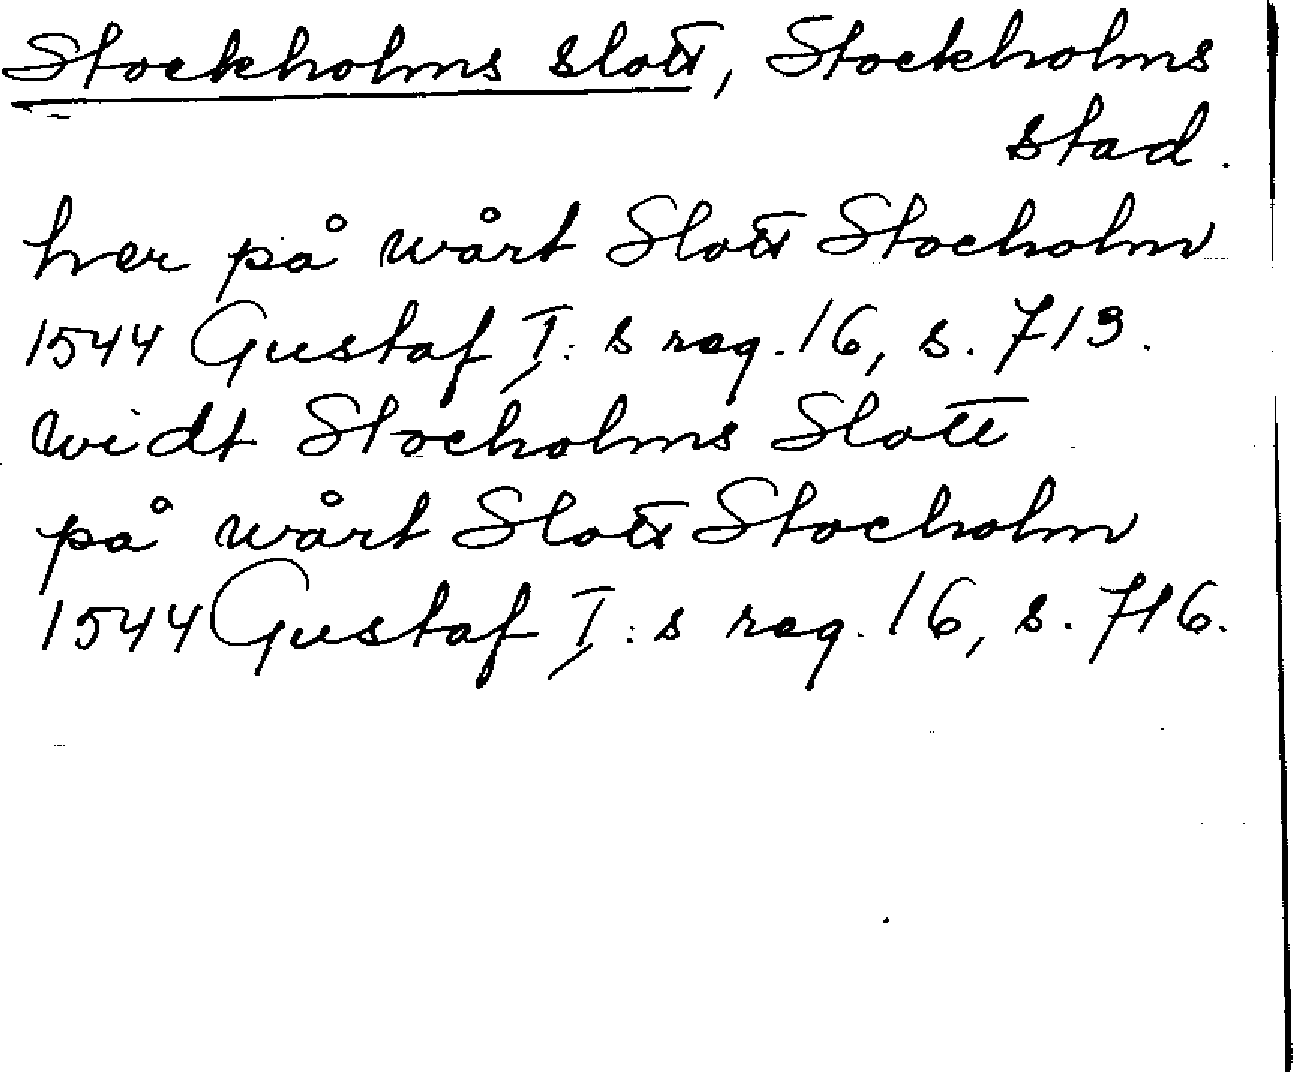 Stockholms slott, Stockholms
stad.
her på wårt Slott Stocholm
1544 Gustaf I:s reg. 16, s. 713.
widt Stocholms Slott
på wårt Slott Stocholm
1544 Gustaf I:s reg. 16, s. 716.